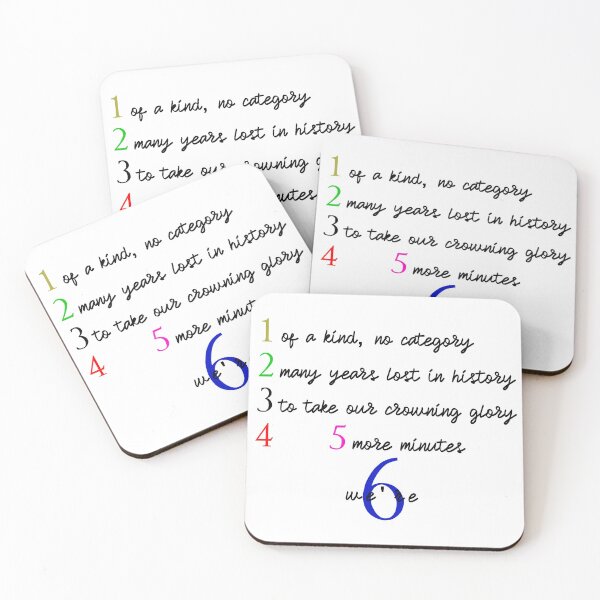 1 of a kind, no category
2 many years lost in history
3 to take our crowning
4 minutes
1 of a kind, no category
2 many years lost in history
3 to take our crowning glory
4 5 more minutes
6
1 of a kind, no category
2 many years lost in history
3 to take our crowning glory
4 5 more
6
1 of a kind, no category
2 many years lost in history
3 to take our crowning glory
4 5 more minutes
6
we're